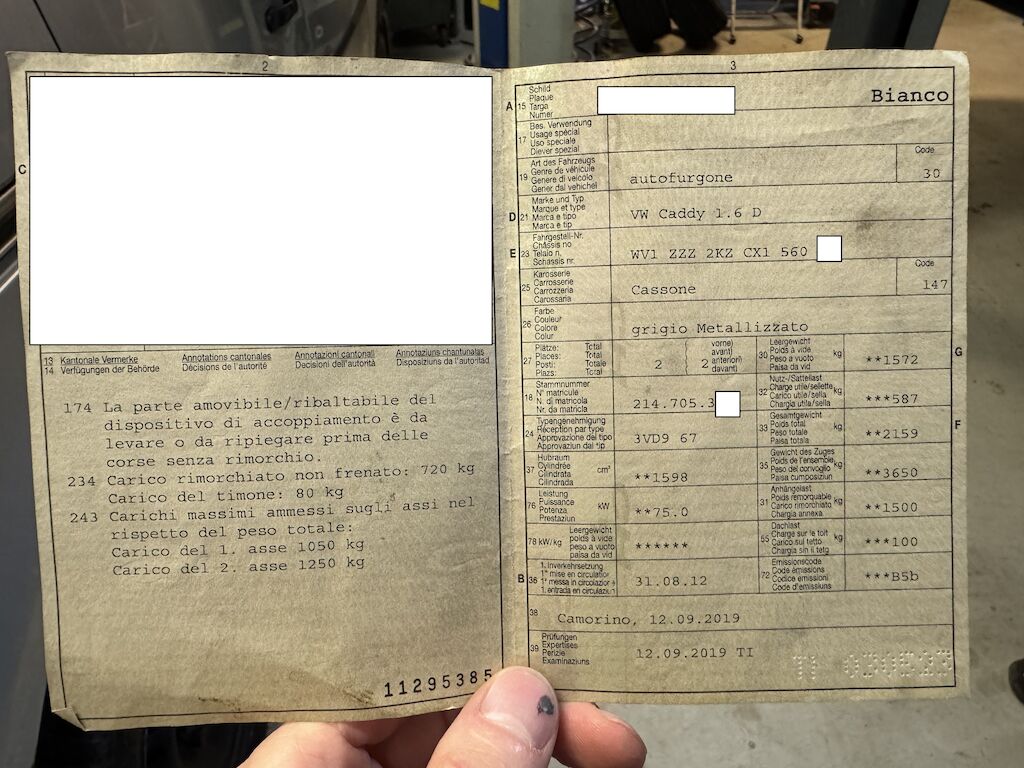 2
C
13 Kantonale Vermerke Annotations cantonales Annotazioni cantonali Annotaziuns chantunalas
14 Verfügungen der Behörde Décisions de l'autorité Decisioni dell'autorità Disposiziuns da l'autoritad
174 La parte amovibile/ribaltabile del
dispositivo di accoppiamento è da
levare o da ripiegare prima delle
corse senza rimorchio.
234 Carico rimorchiato non frenato: 720 kg
Carico del timone: 80 kg
243 Carichi massimi ammessi sugli assi nel
rispetto del peso totale:
Carico del 1. asse 1050 kg
Carico del 2. asse 1250 kg
11295385
3
A 15 Schild
Plaque
Targa
Numer
Bianco
17 Bes. Verwendung
Usage spécial
Uso speciale
Diever spezial
19 Art des Fahrzeugs
Genre de véhicule
Genere di veicolo
Gener dal vehichel
autofurgone
Code
30
D 21 Marke und Typ
Marque et type
Marca e tipo
Marca e tip
VW Caddy 1.6 D
E 23 Fahrgestell-Nr.
Châssis no
Telaio n.
Schassis nr.
WV1 ZZZ 2KZ CX1 560
25 Karosserie
Carrosserie
Carrozzeria
Carossaria
Cassone
Code
147
26 Farbe
Couleur
Colore
Colur
grigio Metallizzato
27 Plätze: Total
Places: Total
Posti: Totale
Plazs: Total
2
2
vorne)
avant)
anteriori)
davant)
G 30 Leergewicht
Poids à vide
Peso a vuoto
Paisa da vid
kg
**1572
18 Stammnummer
N° matricule
N. di matricola
Nr. da matricla
214.705.3
32 Nutz-/Sattellast
Charge utile/sellette
Carico utile/sella
Chargia utila/sella
kg
***587
24 Typengenehmigung
Réception par type
Approvazione del tipo
Approvaziun dal tip
3VD9 67
F 33 Gesamtgewicht
Poids total
Peso totale
Paisa totala
kg
**2159
37 Hubraum
Cylindrée
Cilindrata
Cilindrada
cm³
**1598
35 Gewicht des Zuges
Poids de l'ensemble
Peso del convoglio
Paisa cumposiziun
kg
**3650
76 Leistung
Puissance
Potenza
Prestaziun
kW
**75.0
31 Anhängelast
Poids remorquable
Carico rimorchiato
Chargia annexa
kg
**1500
78 kW/kg Leergewicht
poids à vide
peso a vuoto
paisa da vid
******
55 Dachlast
Charge sur le toit
Carico sul tetto
Chargia sin il tetg
kg
***100
B 36 1. Inverkehrsetzung
1re mise en circulation
1a messa in circolazione
1. entrada en circulaziun
31.08.12
72 Emissionscode
Code émissions
Codice emissioni
Code d'emissiuns
***B5b
38 Camorino, 12.09.2019
39 Prüfungen
Expertises
Perizie
Examinaziuns
12.09.2019 TI